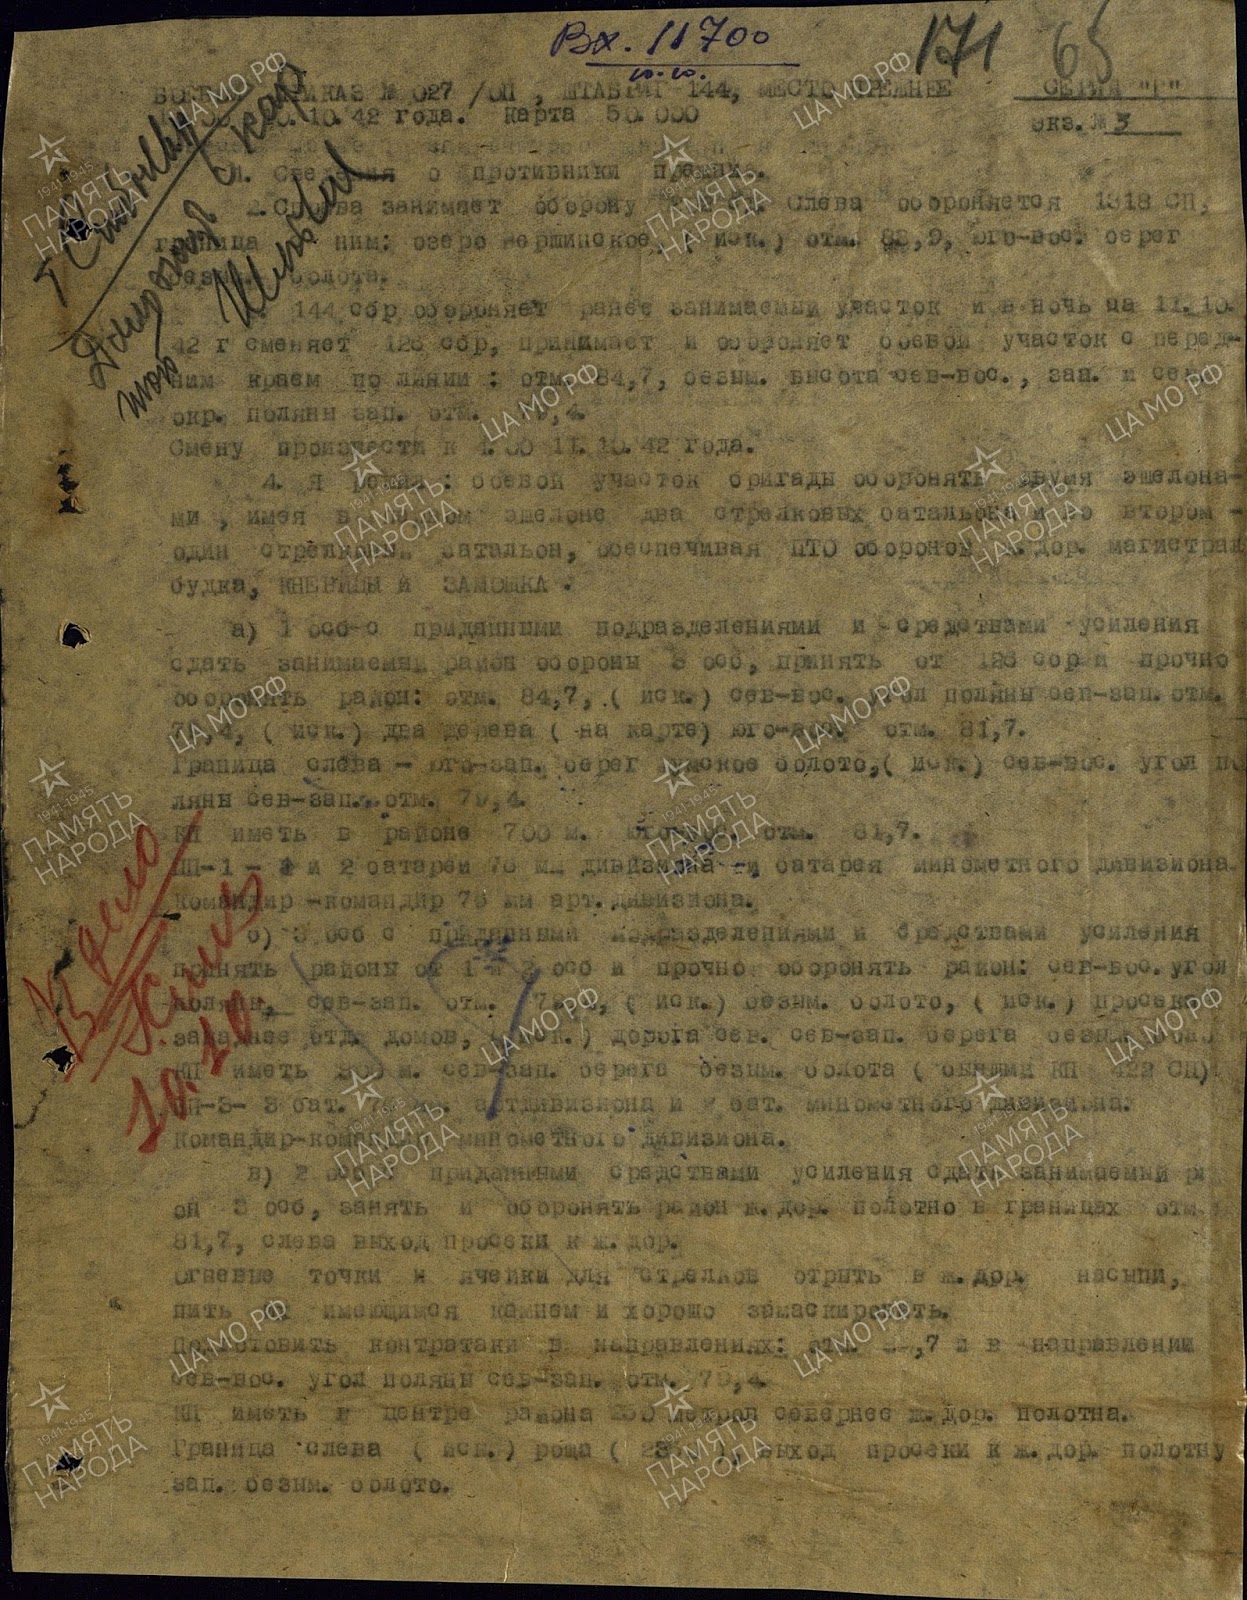 Вх. 11700
10.10.
171 65
БОЕВОЙ ПРИКАЗ № 027 /ОП, ШТАБРИГ 144, МЕСТО ПРЕЖНЕЕ СЕРИЯ "Г"
10.42 года. Карта 50.000 Экз.№ 3
1. Сведения о противники прежние.
2. Справа занимает оборону слева обороняется 1318 СП,
граница с ним: озеро Вершинское, ( иск.) отм. 82,9, юго-вос. берег
безым. болота.
144 сбр обороняет ранее занимаемый участок и в ночь на 11.10.
42 г сменяет 126 сбр, принимает и обороняет боевой участок с перед-
ним краем по линии: отм. 84,7, безым. высота сев-вос., зап. и сев
окр. поляны зап. отм. 79,4.
Смену произвести к 4.00 11.10.42 года.
4. Я решил: боевой участок бригады оборонять двумя эшелона-
ми, имея в первом эшелоне два стрелковых батальона и во втором -
один стрелковый батальон, обеспечивая ПТО обороной ж.дор. магистраль
будка, КНЕВИЦЫ и ЗАМОШКА.
а) 1 осб с приданными подразделениями и средствами усиления
сдать занимаемый район обороны 3 осб, принять от 126 сбр и прочно
оборонять район: отм. 84,7, ( иск.) сев-вос. угол поляны сев-зап. отм.
79,4, ( иск.) два дерева ( на карте) юго-вос. отм. 81,7.
Граница слева - юго-зап. берег болото, ( иск.) сев-вос. угол по
ляны сев-зап. отм. 79,4.
КП иметь в районе 700 м. отм. 81,7.
ПП-1 - 1 и 2 батареи 76 мм дивизиона и батарея минометного дивизиона.
Командир -командир 76 мм арт. дивизиона.
б) 3 осб с приданными подразделениями и средствами усиления
принять районы от 1 и 2 осб и прочно оборонять район: сев-вос. угол
поляны, сев-зап. отм. 79,4, ( иск.) безым. болото, ( иск.) просека
западнее отд. домов, ( иск.) дорога сев. сев-зап. берега безым.
КП иметь 300 м. сев-зап. берега безым. болота ( бывший КП 422 СП)
ПП-3- 3 бат. 76 мм. артдивизиона и 2 бат. минометного дивизиона.
Командир-командир минометного дивизиона.
в) 2 осб с приданными средствами усиления сдать занимаемый ра
он 3 осб, занять и оборонять район ж.дор. полотно в границах отм.
81,7, слева выход просеки к ж.дор.
Огневые точки и ячейки для стрелков отрыть в ж.дор. насыпи,
имеющимся камнем и хорошо замаскировать.
Подготовить контратаки в направлениях: отм. 84,7 и в направлении
сев-вос. угол поляны сев-зап. отм. 79,4.
КП иметь в центре района 200 метров севернее ж.дор. полотна.
Граница слева ( иск.) роща ( ), выход просеки к ж.дор. полотну
зап. безым. болото.
В дело
10.10
ПАМЯТЬ НАРОДА
1941-1945
ЦА МО РФ